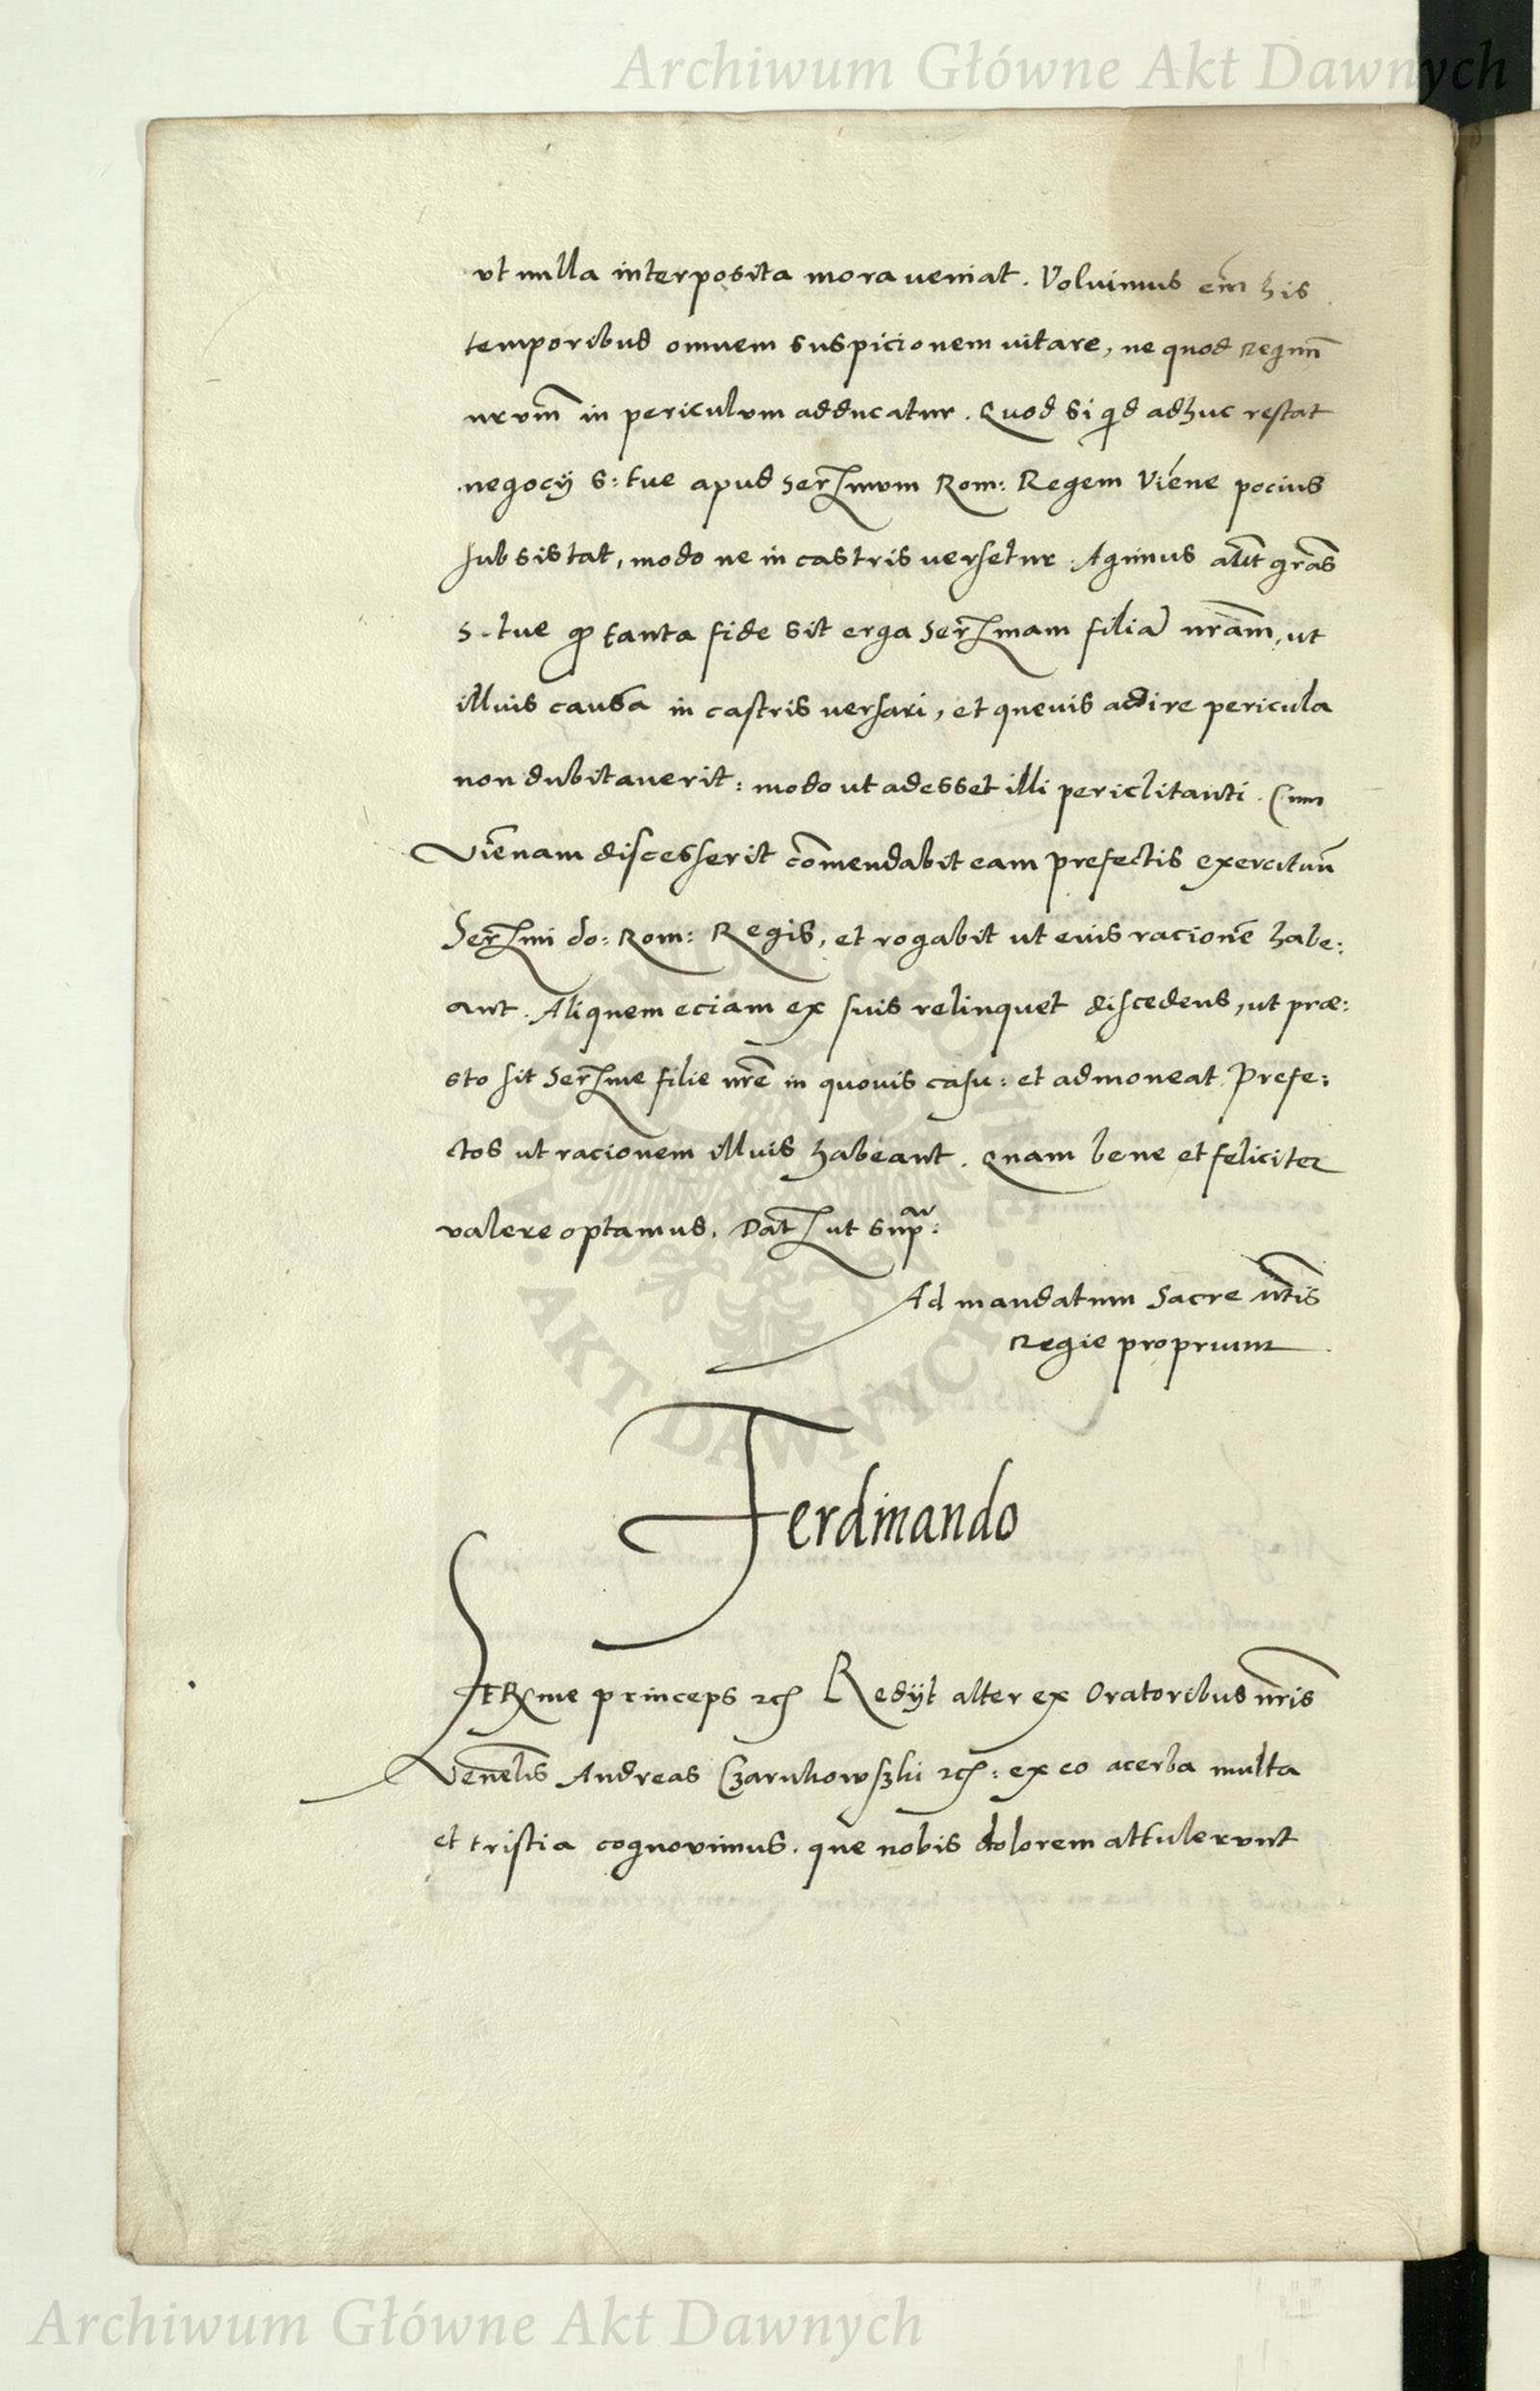 Archiwum Główne Akt Dawnych
vt nulla interposita mora ueniat. Voluimus em̄ his
temporibus omnem suspicionem uitare, ne quod regnū
nrvm̄ in periculvm adducatur. Quod si qd adhuc restat
negocÿ s: tue apud Serᵐmvm Rom: Regem Viēne pocius
subsistat, modo ne in castris versetur. Agimus aūt grās
s. tue ꝙ tanta fide sit erga Serᵐmam filiā nrām, ut
illius causa in castris uersari, et queuis adire pericula
non dubitauerit: modo ut adesset illi periclitanti. Cum
Viēnam discesserit cōmendabit eam prefectis exercituū
Serᵐmi do: Rom: Regis, et rogabit ut euis racionē habe:
ant. Aliquem eciam ex suis relinquet discedens, ut præ:
sto sit Serᵐme filie nrē in quouis casu: et admoneat Prefe:
ctos ut racionem illuis habeant. Quam bene et feliciter
valere optamus. Dat ut supᵃ:
Ad mandatum Sacre Mtis
Regie proprium
Ferdinando
SERme princeps etc Redÿt alter ex Oratoribus nr̄is
Venelis Andreas Czarnkowszki etc: ex eo acerba multa
et tristia cognovimus. que nobis dolorem attulerunt
ARCHIWUM GŁÓWNE
AKT DAWNYCH
Archiwum Główne Akt Dawnych